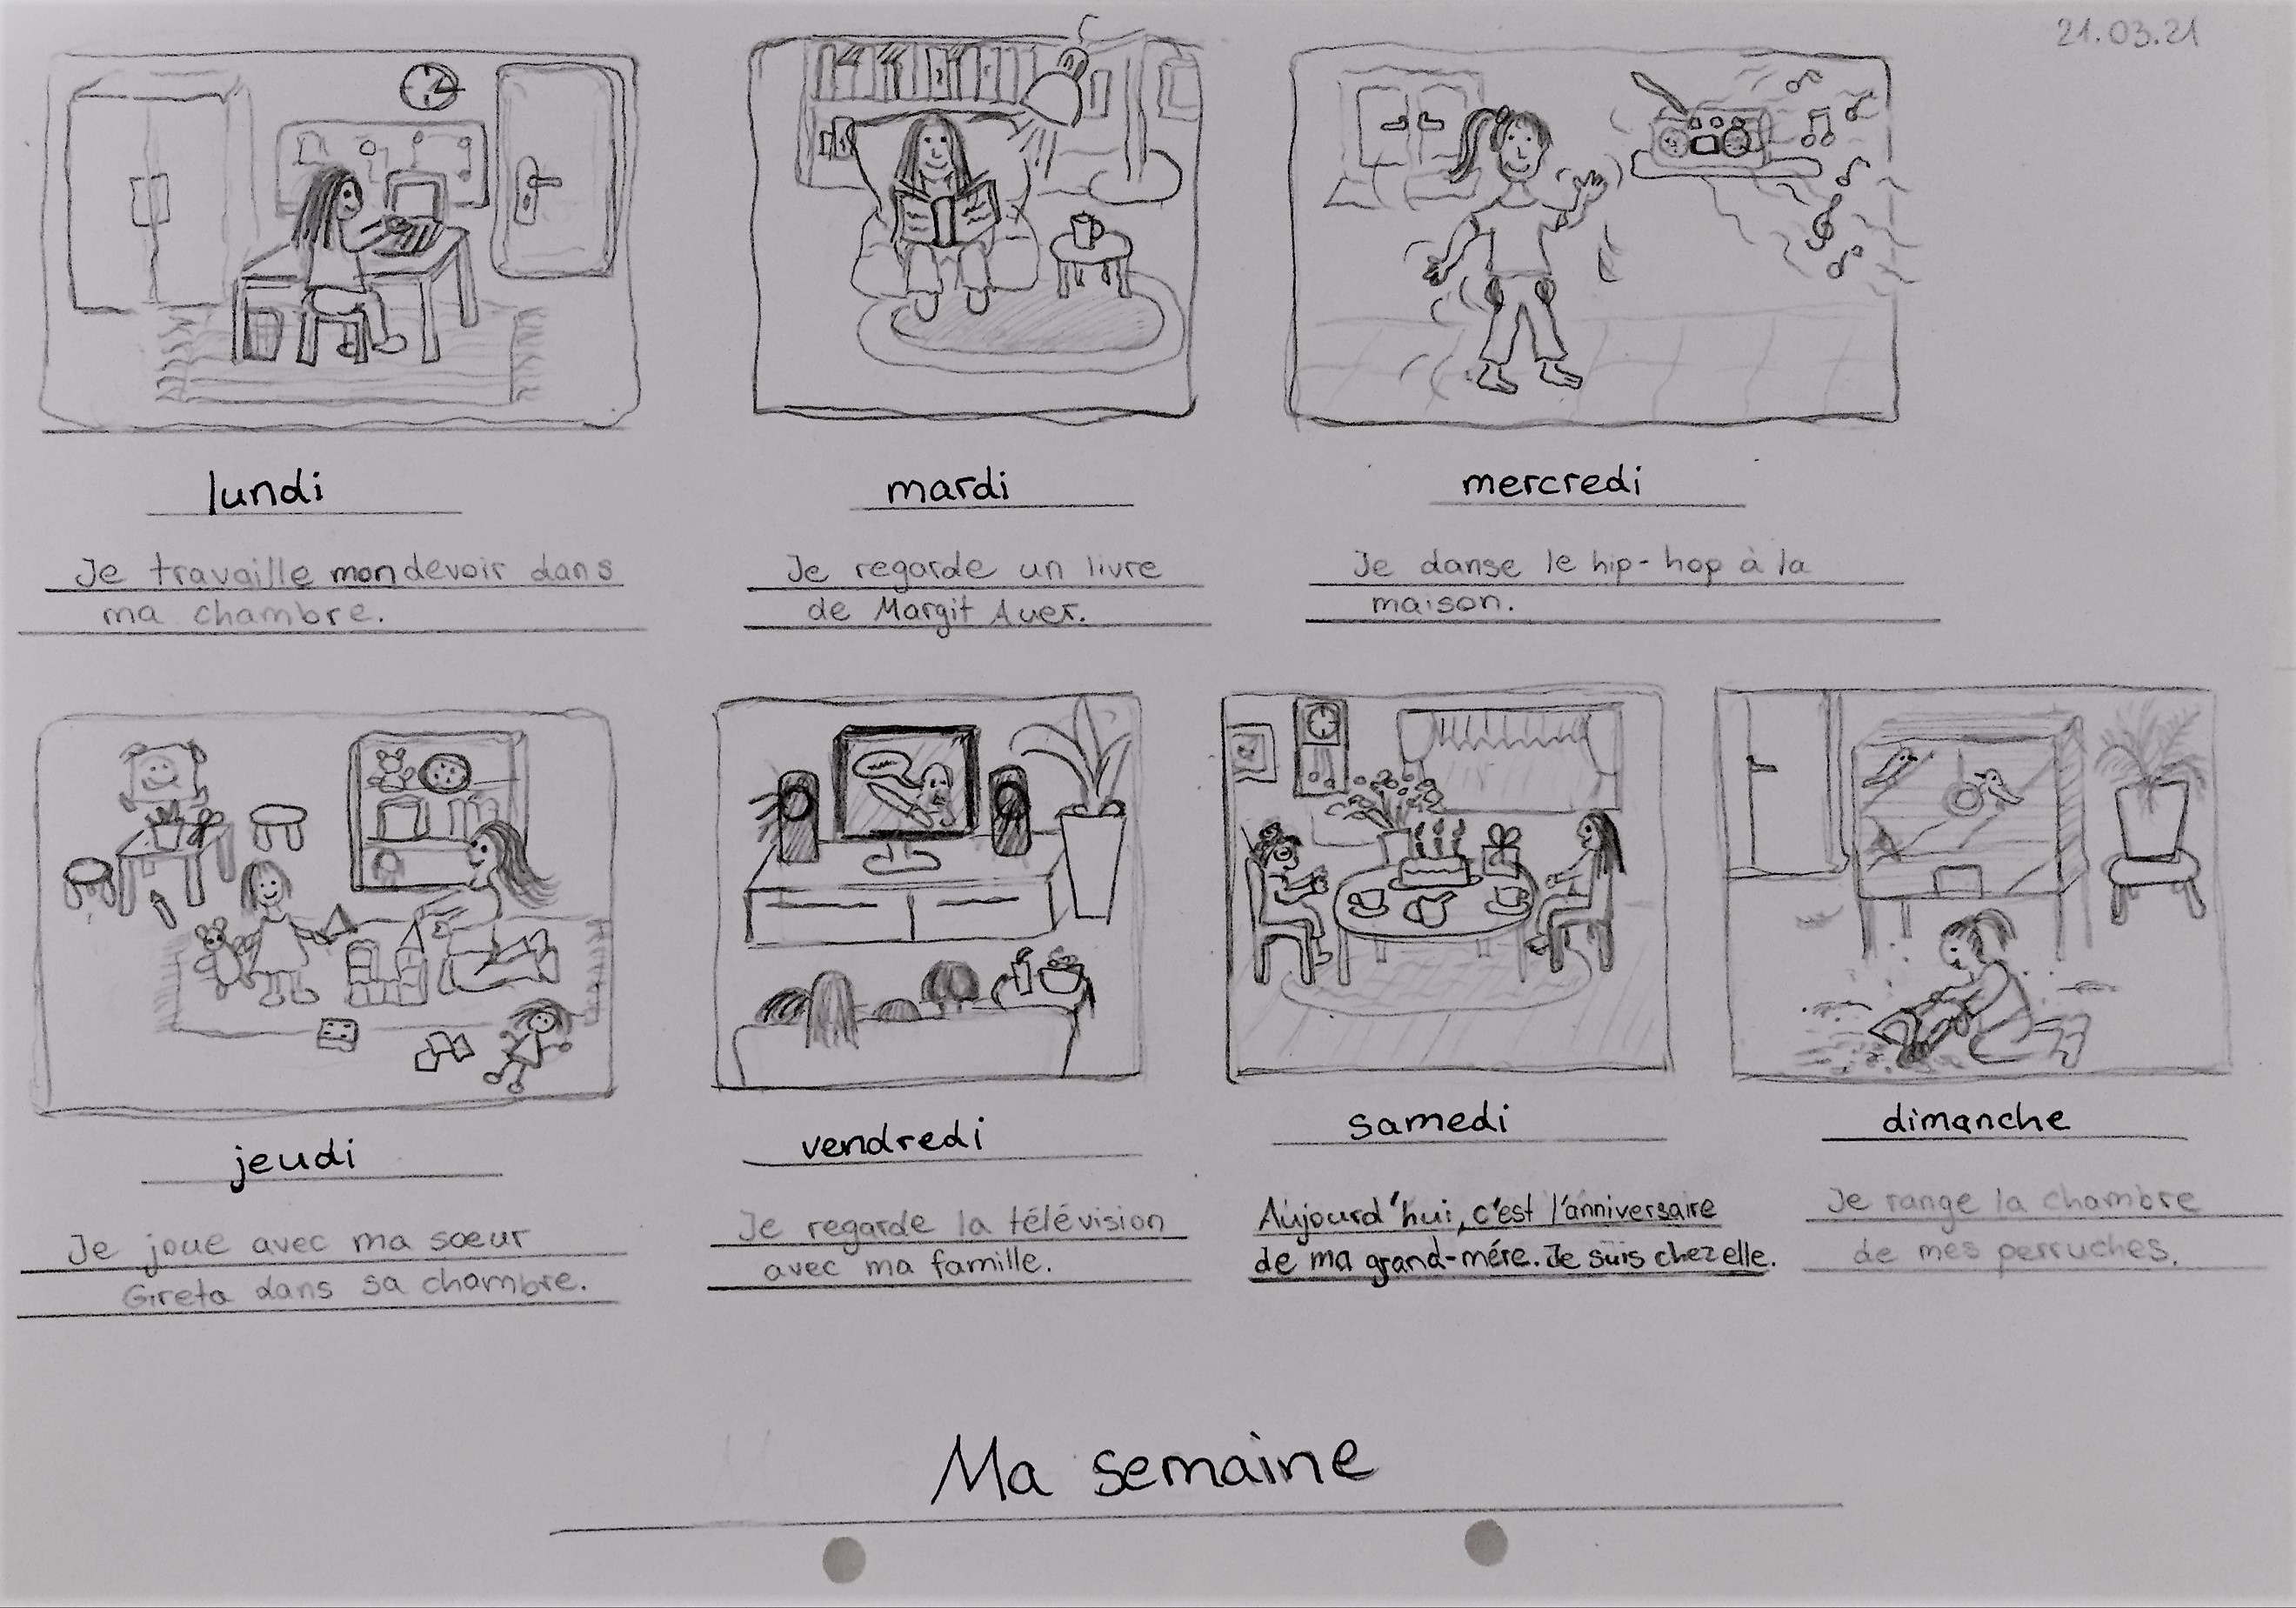 21.03.21
lundi
mardi
mercredi
Je travaille mon devoir dans
ma chambre.
Je regarde un livre
de Margit Auer.
Je danse le hip-hop à la
maison.
jeudi
vendredi
samedi
dimanche
Je joue avec ma sœur
Greta dans sa chambre.
Je regarde la télévision
avec ma famille.
Aujourd'hui, c'est l'anniversaire
de ma grand-mére. Je suis chez elle.
Je range la chambre
de mes perruches.
Ma semaine